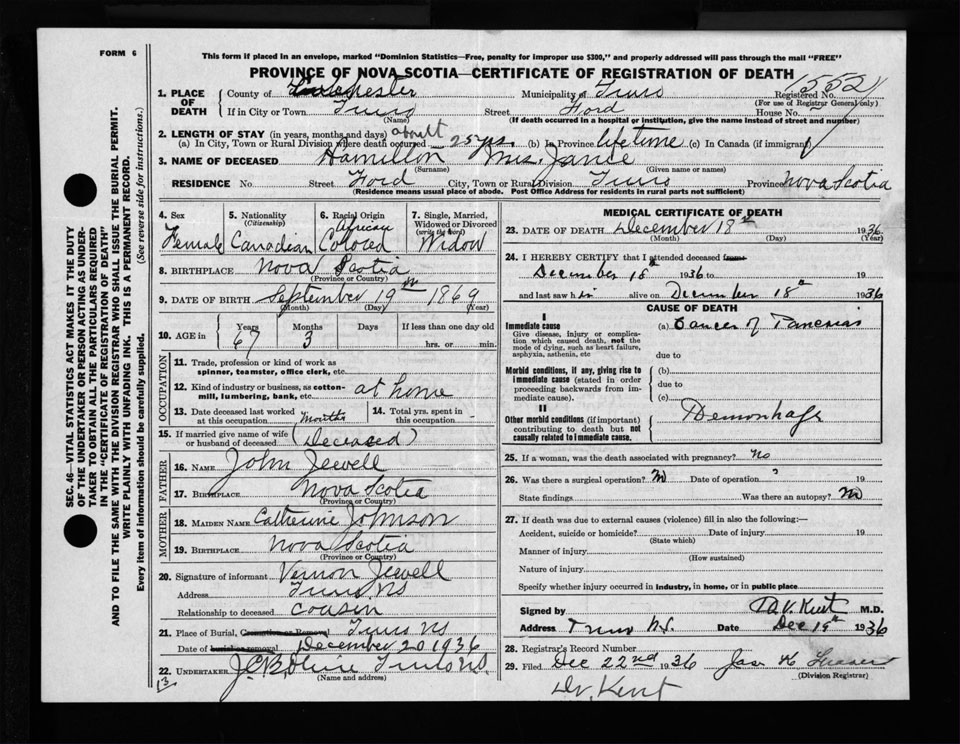 FORM 6
This form if placed in an envelope, marked "Dominion Statistics—Free, penalty for improper use $300," and properly addressed will pass through the mail "FREE"
PROVINCE OF NOVA SCOTIA—CERTIFICATE OF REGISTRATION OF DEATH
15521
1. PLACE OF DEATH County of Colchester Municipality of Truro Registered No.
(For use of Registrar General only)
If in City or Town Truro Street Ford House No.
(Name) (If death occurred in a hospital or institution, give the name instead of street and number)
2. LENGTH OF STAY (in years, months and days) about
(a) In City, Town or Rural Division where death occurred 25 yrs. (b) In Province lifetime (c) In Canada (if immigrant)
3. NAME OF DECEASED Hamilton Mrs. Janie
(Surname) (Given name or names)
RESIDENCE No. Street Ford City, Town or Rural Division Truro Province Nova Scotia
(Residence means usual place of abode. Post Office Address for residents in rural parts not sufficient)
4. Sex Female
5. Nationality (Citizenship) Canadian
6. Racial Origin African Colored
7. Single, Married, Widowed or Divorced (write the word) Widow
8. BIRTHPLACE Nova Scotia
(Province or Country)
9. DATE OF BIRTH September 19th 1869
(Month) (Day) (Year)
10. AGE in Years 67 Months 3 Days If less than one day old hrs. or min.
OCCUPATION
11. Trade, profession or kind of work as spinner, teamster, office clerk, etc.
12. Kind of industry or business, as cotton-mill, lumbering, bank, etc. at home
13. Date deceased last worked at this occupation Months
14. Total yrs. spent in this occupation -
15. If married give name of wife or husband of deceased (Deceased)
FATHER
16. NAME John Jewell
17. BIRTHPLACE Nova Scotia
(Province or Country)
MOTHER
18. MAIDEN NAME Catherine Johnson
19. BIRTHPLACE Nova Scotia
(Province or Country)
20. Signature of informant Vernon Jewell
Address Truro NS
Relationship to deceased Cousin
21. Place of Burial, Cremation or Removal Truro NS
Date of burial or removal December 20 1936
22. UNDERTAKER Truro NS
(Name and address)
13
MEDICAL CERTIFICATE OF DEATH
23. DATE OF DEATH December 18th 1936
(Month) (Day) (Year)
24. I HEREBY CERTIFY that I attended deceased from
December 18th 1936 to 19
and last saw h alive on December 18th 1936
CAUSE OF DEATH
I
Immediate cause
Give disease, injury or complication which caused death, not the mode of dying, such as heart failure, asphyxia, asthenia, etc
(a) Cancer of Pancreas
due to
Morbid conditions, if any, giving rise to immediate cause (stated in order proceeding backwards from immediate cause).
(b)
due to
(c)
II
Other morbid conditions (if important) contributing to death but not causally related to immediate cause.
25. If a woman, was the death associated with pregnancy? No
26. Was there a surgical operation? No Date of operation ? 19
State findings Was there an autopsy? No
27. If death was due to external causes (violence) fill in also the following:—
Accident, suicide or homicide? Date of injury 19
(State which)
Manner of injury
(How sustained)
Nature of injury
Specify whether injury occurred in industry, in home, or in public place
Signed by Kent M.D.
Address Truro N.S. Date Dec 19th 1936
28. Registrar's Record Number
29. Filed Dec 22nd 1936
(Division Registrar)
Dr. Kent
SEC. 46—VITAL STATISTICS ACT MAKES IT THE DUTY
OF THE UNDERTAKER OR PERSON ACTING AS UNDER-
TAKER TO OBTAIN ALL THE PARTICULARS REQUIRED
IN THE "CERTIFICATE OF REGISTRATION OF DEATH"
AND TO FILE THE SAME WITH THE DIVISION REGISTRAR WHO SHALL ISSUE THE BURIAL PERMIT.
WRITE PLAINLY WITH UNFADING INK. THIS IS A PERMANENT RECORD.
Every item of information should be carefully supplied. (See reverse side for instructions.)